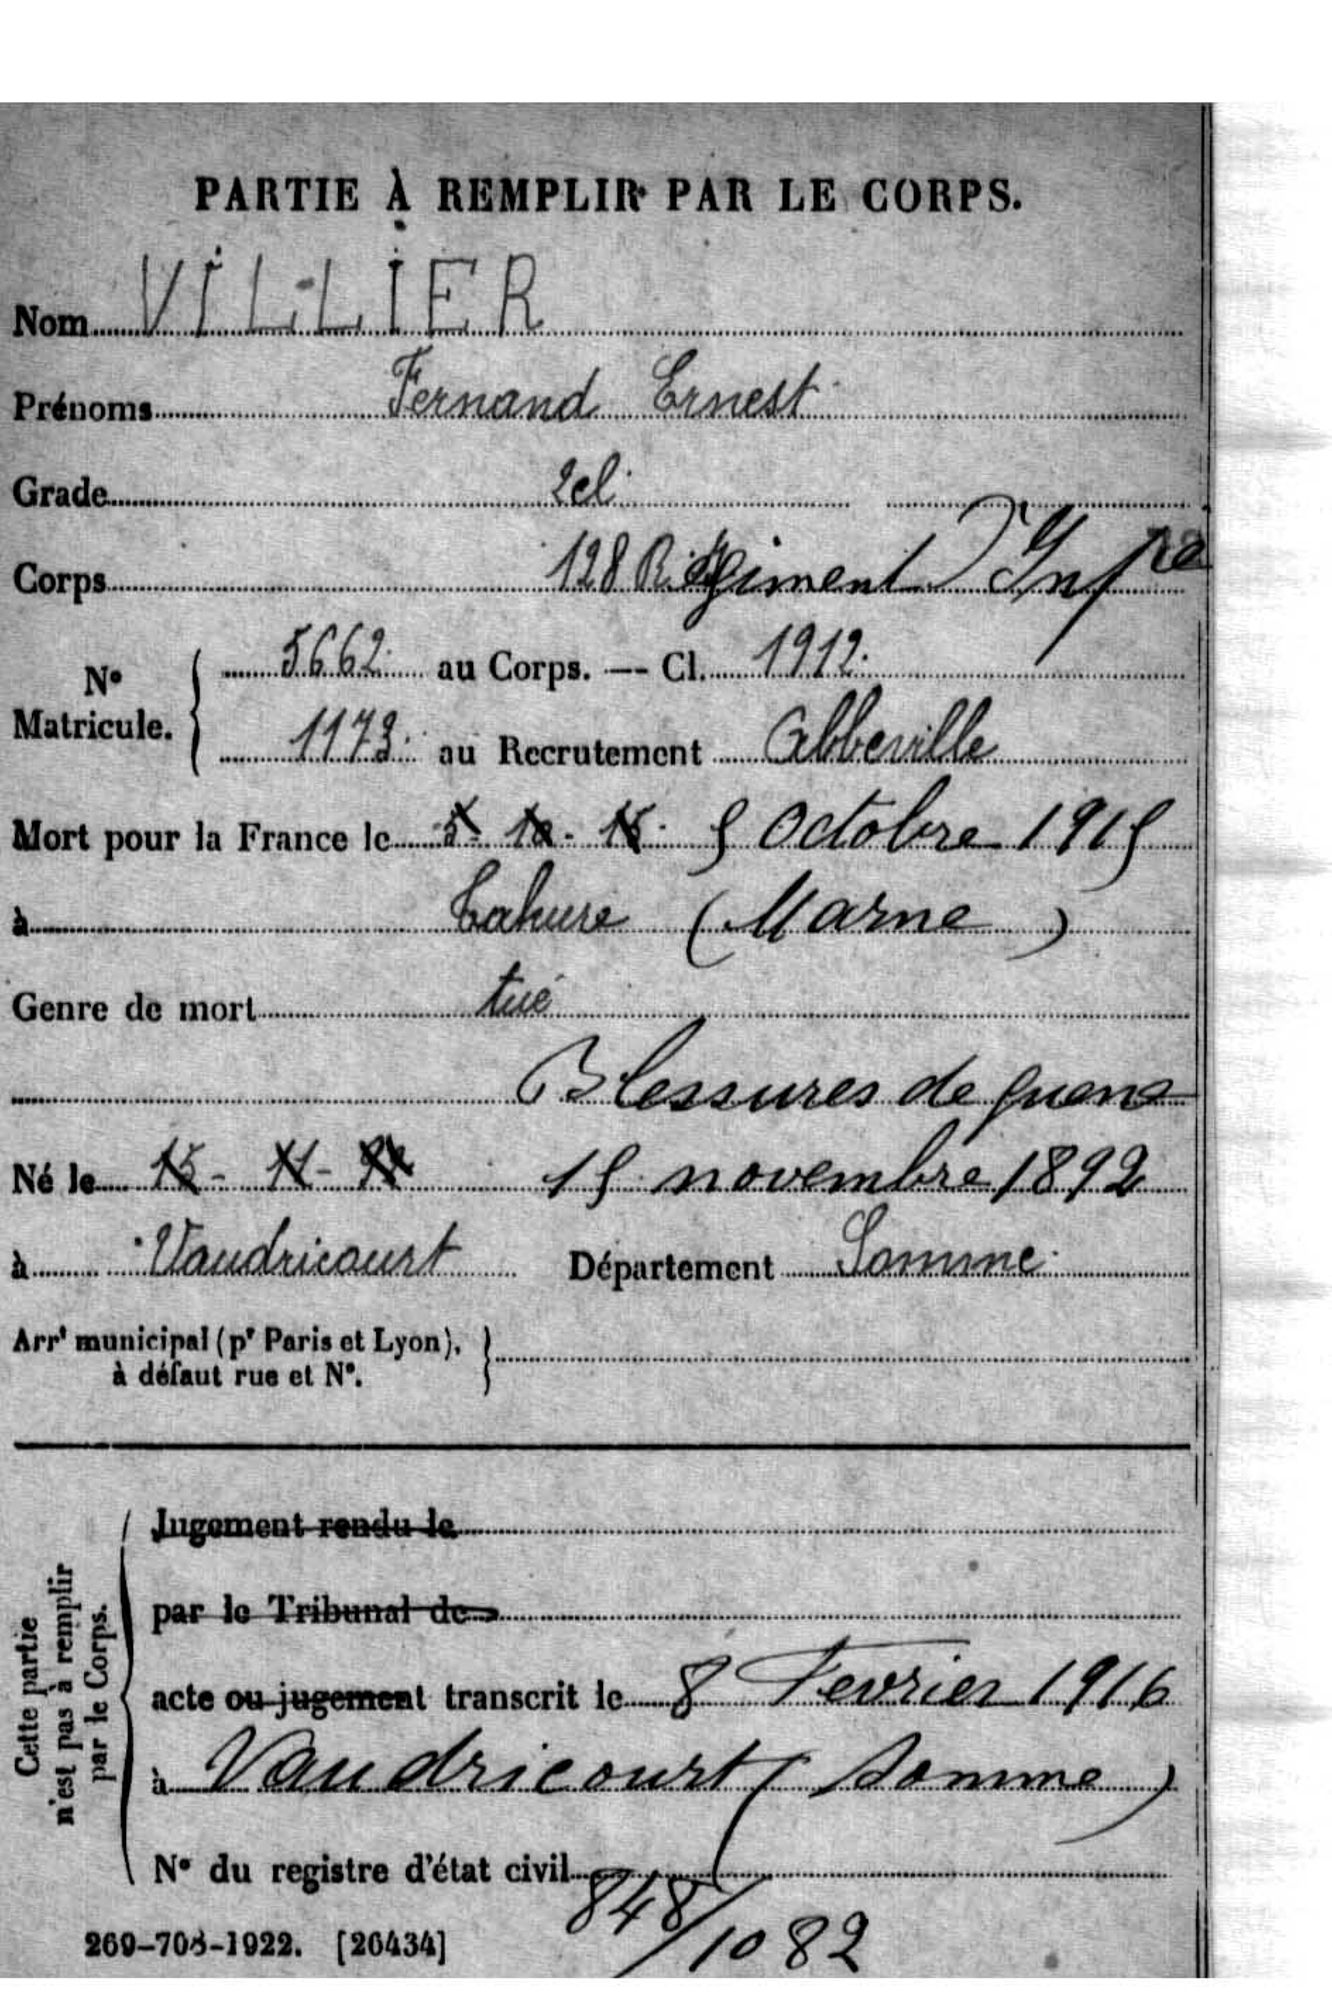 PARTIE À REMPLIR PAR LE CORPS.
Nom VILLIER
Prénoms Fernand Ernest
Grade 2cl.
Corps 128 R. Régiment d'Inf rie
No Matricule. 5662. au Corps. — Cl. 1912.
1173. au Recrutement Abbeville
Mort pour la France le 5 - 10 - 15. 5 Octobre 1915
à Tahure (Marne)
Genre de mort tué
Blessures de guerre
Né le 15 - 11 - 15 novembre 1892
à Vaudricourt Département Somme.
Arrt municipal (pr Paris et Lyon),
à défaut rue et N°.
Cette partie
n'est pas à remplir
par le Corps.
Jugement rendu le
par le Tribunal de
acte ou jugement transcrit le 8 Fevrier 1916
à Vaudricourt (Somme)
N° du registre d'état civil
848/1082
269-708-1922. [26434]